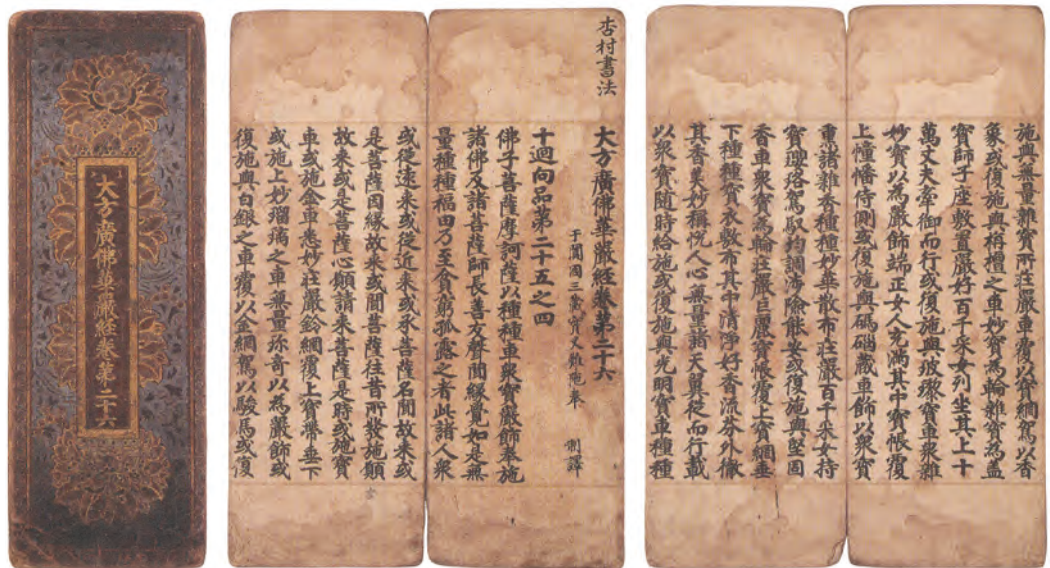 大方廣佛華嚴經卷第二十六
杏村書法
大方廣佛華嚴經卷第二十六
于闐國三藏實叉難陁奉 制譯
十迴向品第二十五之四
佛子菩薩摩訶薩以種種車衆寶嚴飾奉施
諸佛及諸菩薩師長善友聲聞緣覺如是無
量種種福田乃至貧窮孤露之者此諸人衆
或從遠來或從近來或承菩薩名聞故來或
是菩薩因緣故來或聞菩薩往昔所發施願
故来或是菩薩心願請来菩薩是時或施寶
車或施金車悉妙莊嚴鈴網覆上寶帶垂下
或施上妙瑠璃之車無量珎奇以為嚴飾或
復施與白銀之車覆以金網駕以駿馬或復
施與無量雜寶所莊嚴車覆以寶網駕以香
象或復施與栴檀之車妙寶為輪雜寶為蓋
寶師子座敷置嚴好百千采女列坐其上十
萬丈夫牽御而行或復施與玻瓈寶車衆雜
妙寶以為嚴飾端正女人充滿其中寶帳覆
上幢幡侍側或復施與碼碯藏車飾以衆寶
熏諸雜香種種妙華散布莊嚴百千采女持
寶瓔珞駕馭均調涉險能安或復施與堅固
香車衆寶為輪莊嚴巨麗寶帳覆上寶網垂
下種種寶衣敷布其中清淨好香流芬外徹
其香美妙稱悅人心無量諸天翼從而行載
以衆寶隨時給施或復施與光明寶車種種